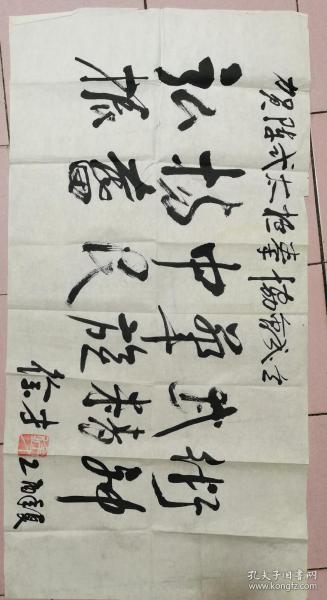 贺陈式太极拳协会成立
弘扬中华武术
振奋民族精神
徐才
孔夫子旧书网